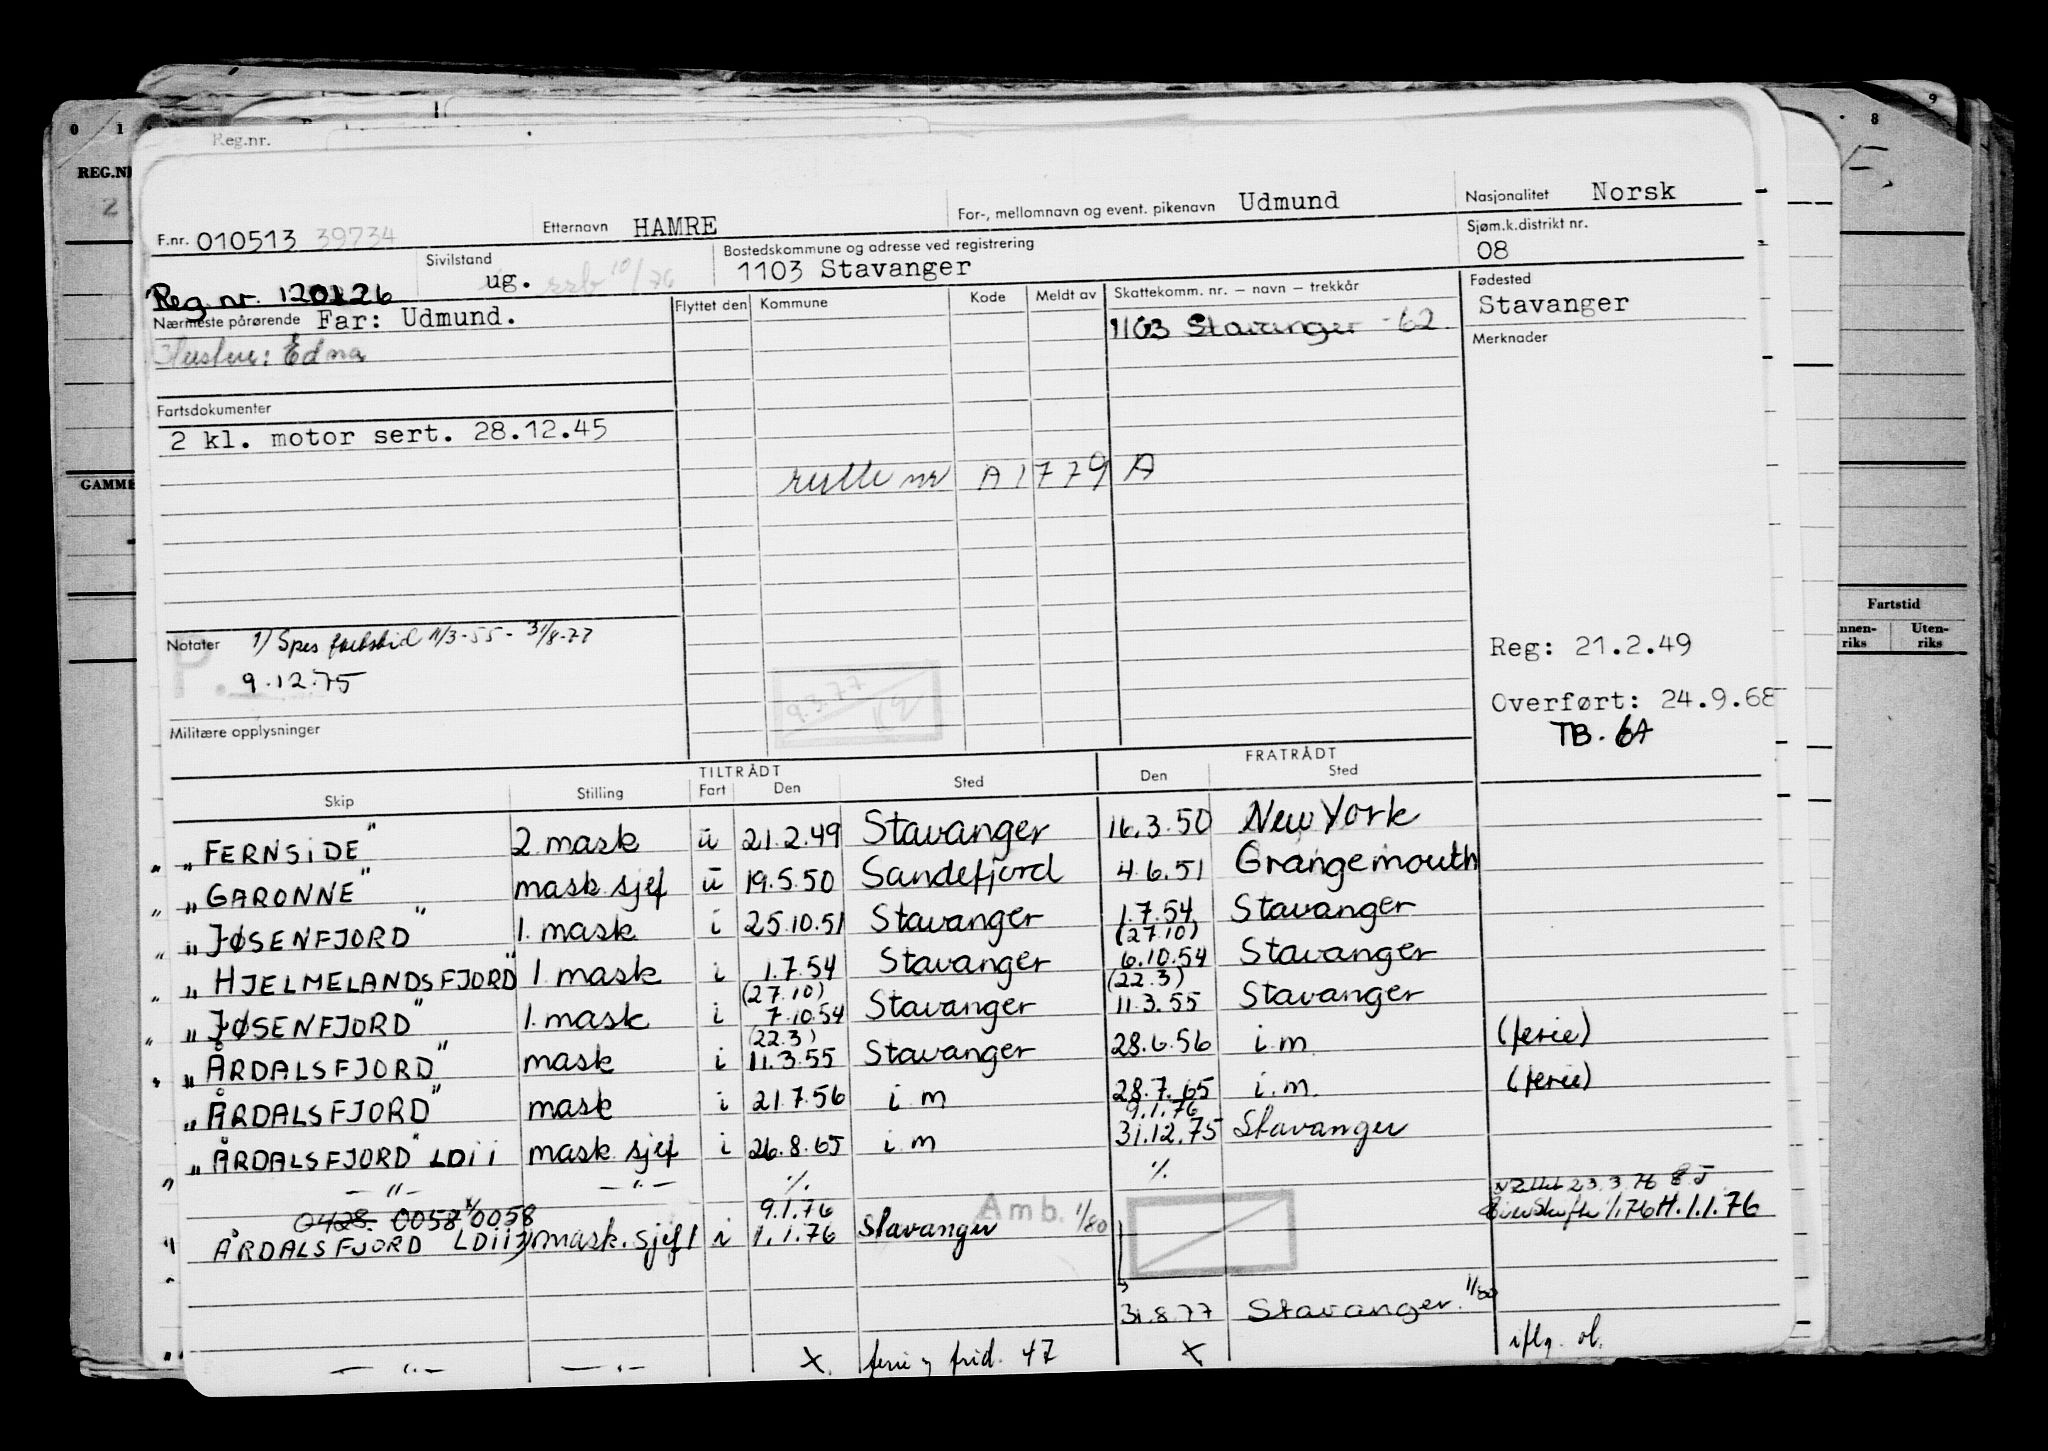 Reg.nr.
REG.NR
0 1
2
9
8
F.nr. 010513 39734
Etternavn HAMRE
For-, mellomnavn og event. pikenavn Udmund
Nasjonalitet Norsk
Reg. nr. 120126
Sivilstand ug. 10/76
Bostedskommune og adresse ved registrering
1103 Stavanger
Sjøm.k.distrikt nr.
08
Nærmeste pårørende Far: Udmund.
Hustru: Edna
Flyttet den Kommune Kode Meldt av Skattekomm. nr. – navn – trekkår
1103 Stavanger - 62
Fødested
Stavanger
Merknader
Fartsdokumenter
2 kl. motor sert. 28.12.45
rulle nr A 1779 A
GAMME
Fartstid
nnen-riks Uten-riks
Notater 1) Spes fartstid 11/3-55 - 31/8-77
9.12.75
9.3.77
Militære opplysninger
Reg: 21.2.49
Overført: 24.9.68
TB. 6A
TILTRÅDT FRATRÅDT
Skip Stilling Fart Den Sted Den Sted
"FERNSIDE" 2 mask u 21.2.49 Stavanger 16.3.50 New York
"GARONNE" mask sjef u 19.5.50 Sandefjord 4.6.51 Grangemouth
"JØSENFJORD" 1. mask i 25.10.51 Stavanger 1.7.54 (27.10) Stavanger
"HJELMELANDSFJORD" 1. mask i 1.7.54 (27.10) Stavanger 6.10.54 (22.3) Stavanger
"JØSENFJORD" 1. mask i 7.10.54 (22.3) Stavanger 11.3.55 Stavanger
"ÅRDALSFJORD" mask i 11.3.55 Stavanger 28.6.56 i.m (ferie)
"ÅRDALSFJORD" mask i 21.7.56 i.m 28.7.65 i.m. (ferie)
"ÅRDALSFJORD" LDII mask sjef i 26.8.65 i.m 9.1.76 31.12.75 Stavanger
— " — — " — ·/. ·/.
0428. 0058 0058 9.1.76 Amb. 1/80 23.3.76
ÅRDALSFJORD LDII mask. sjef 1 i 1.1.76 Stavanger 1/76 H. 1.1.76
31.8.77 Stavanger. 1/80
— " — — " — X. ferie og frid. 47 X iflg. ol.